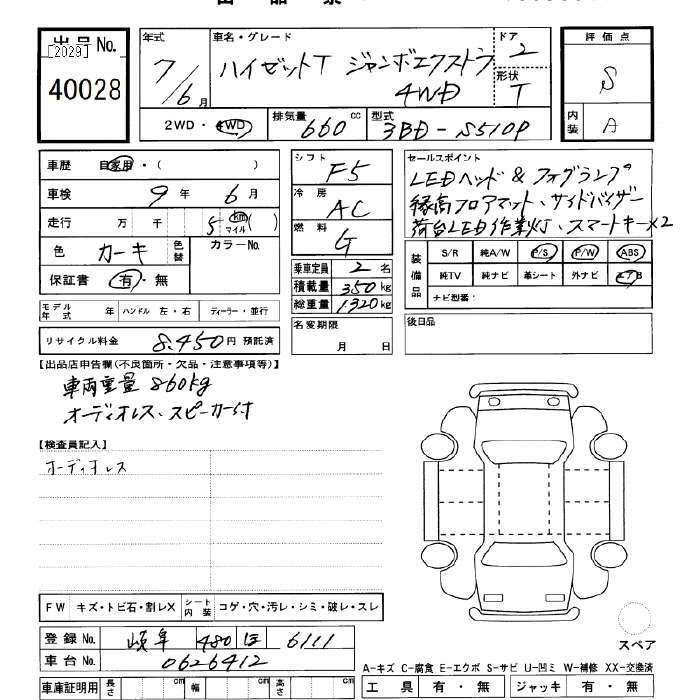 出品票
出品No. [2029]
40028
年式 7/6月
車名・グレード ハイゼットT ジャンボエクストラ 4WD
ドア 2
形状 T
2WD・4WD
排気量 660cc
型式 3BD-S510P
評価点 S
内装 A
車歴 自家用・( )
車検 9年 6月
走行 万 千 5 km マイル ( )
色 カーキ 色替 カラーNo.
保証書 有・無
モデル年式 年 ハンドル 左・右 ディーラー・並行
リサイクル料金 8.450円 預託済
シフト F5
冷房 AC
燃料 G
乗車定員 2名
積載量 350kg
総重量 1320kg
名変期限 月 日
セールスポイント
LEDヘッド&フォグランプ
縁高フロアマット、サイドバイザー
荷台LED作業灯、スマートキー×2
装備品 S/R 純A/W P/S P/W ABS
純TV 純ナビ 革シート 外ナビ エアB
ナビ型番:
後日品
【出品店申告欄(不良箇所・欠品・注意事項等)】
車両重量 860kg
オーディオレス、スピーカー付
【検査員記入】
オーディオレス
FW キズ・トビ石・割レX シート内装 コゲ・穴・汚レ・シミ・破レ・スレ
登録No. 岐阜 480 ほ 6111
車台No. 0626412
車庫証明用 長さ cm 幅 cm 高さ cm
スペア
A-キズ C-腐食 E-エクボ S-サビ U-凹ミ W-補修 XX-交換済
工具 有・無 ジャッキ 有・無